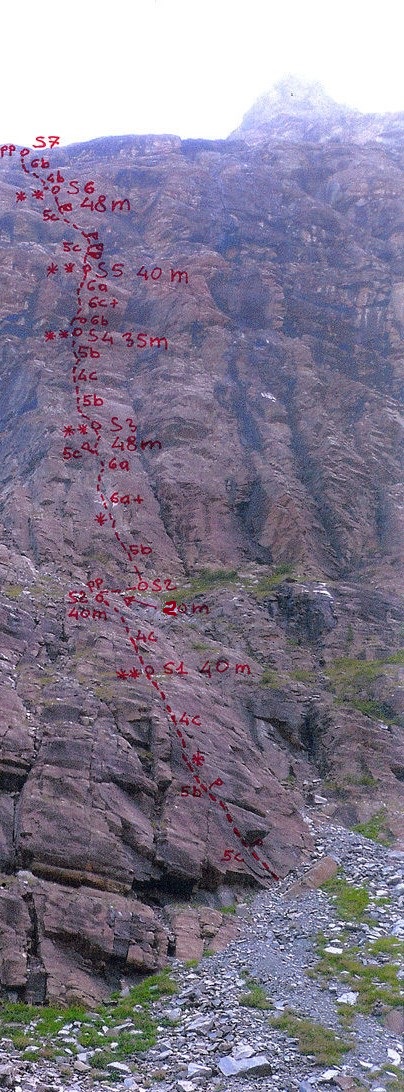 S7
PP
6b
4b
** S6
5c 48m
5c
** S5 40m
6a
6c+
6b
** S4 35m
5b
4c
5b
** S3
48m
5c
6a
6a+
*
5b
PP S2
S2
40m 20m
4c
** S1 40m
4c
*
5b
5c